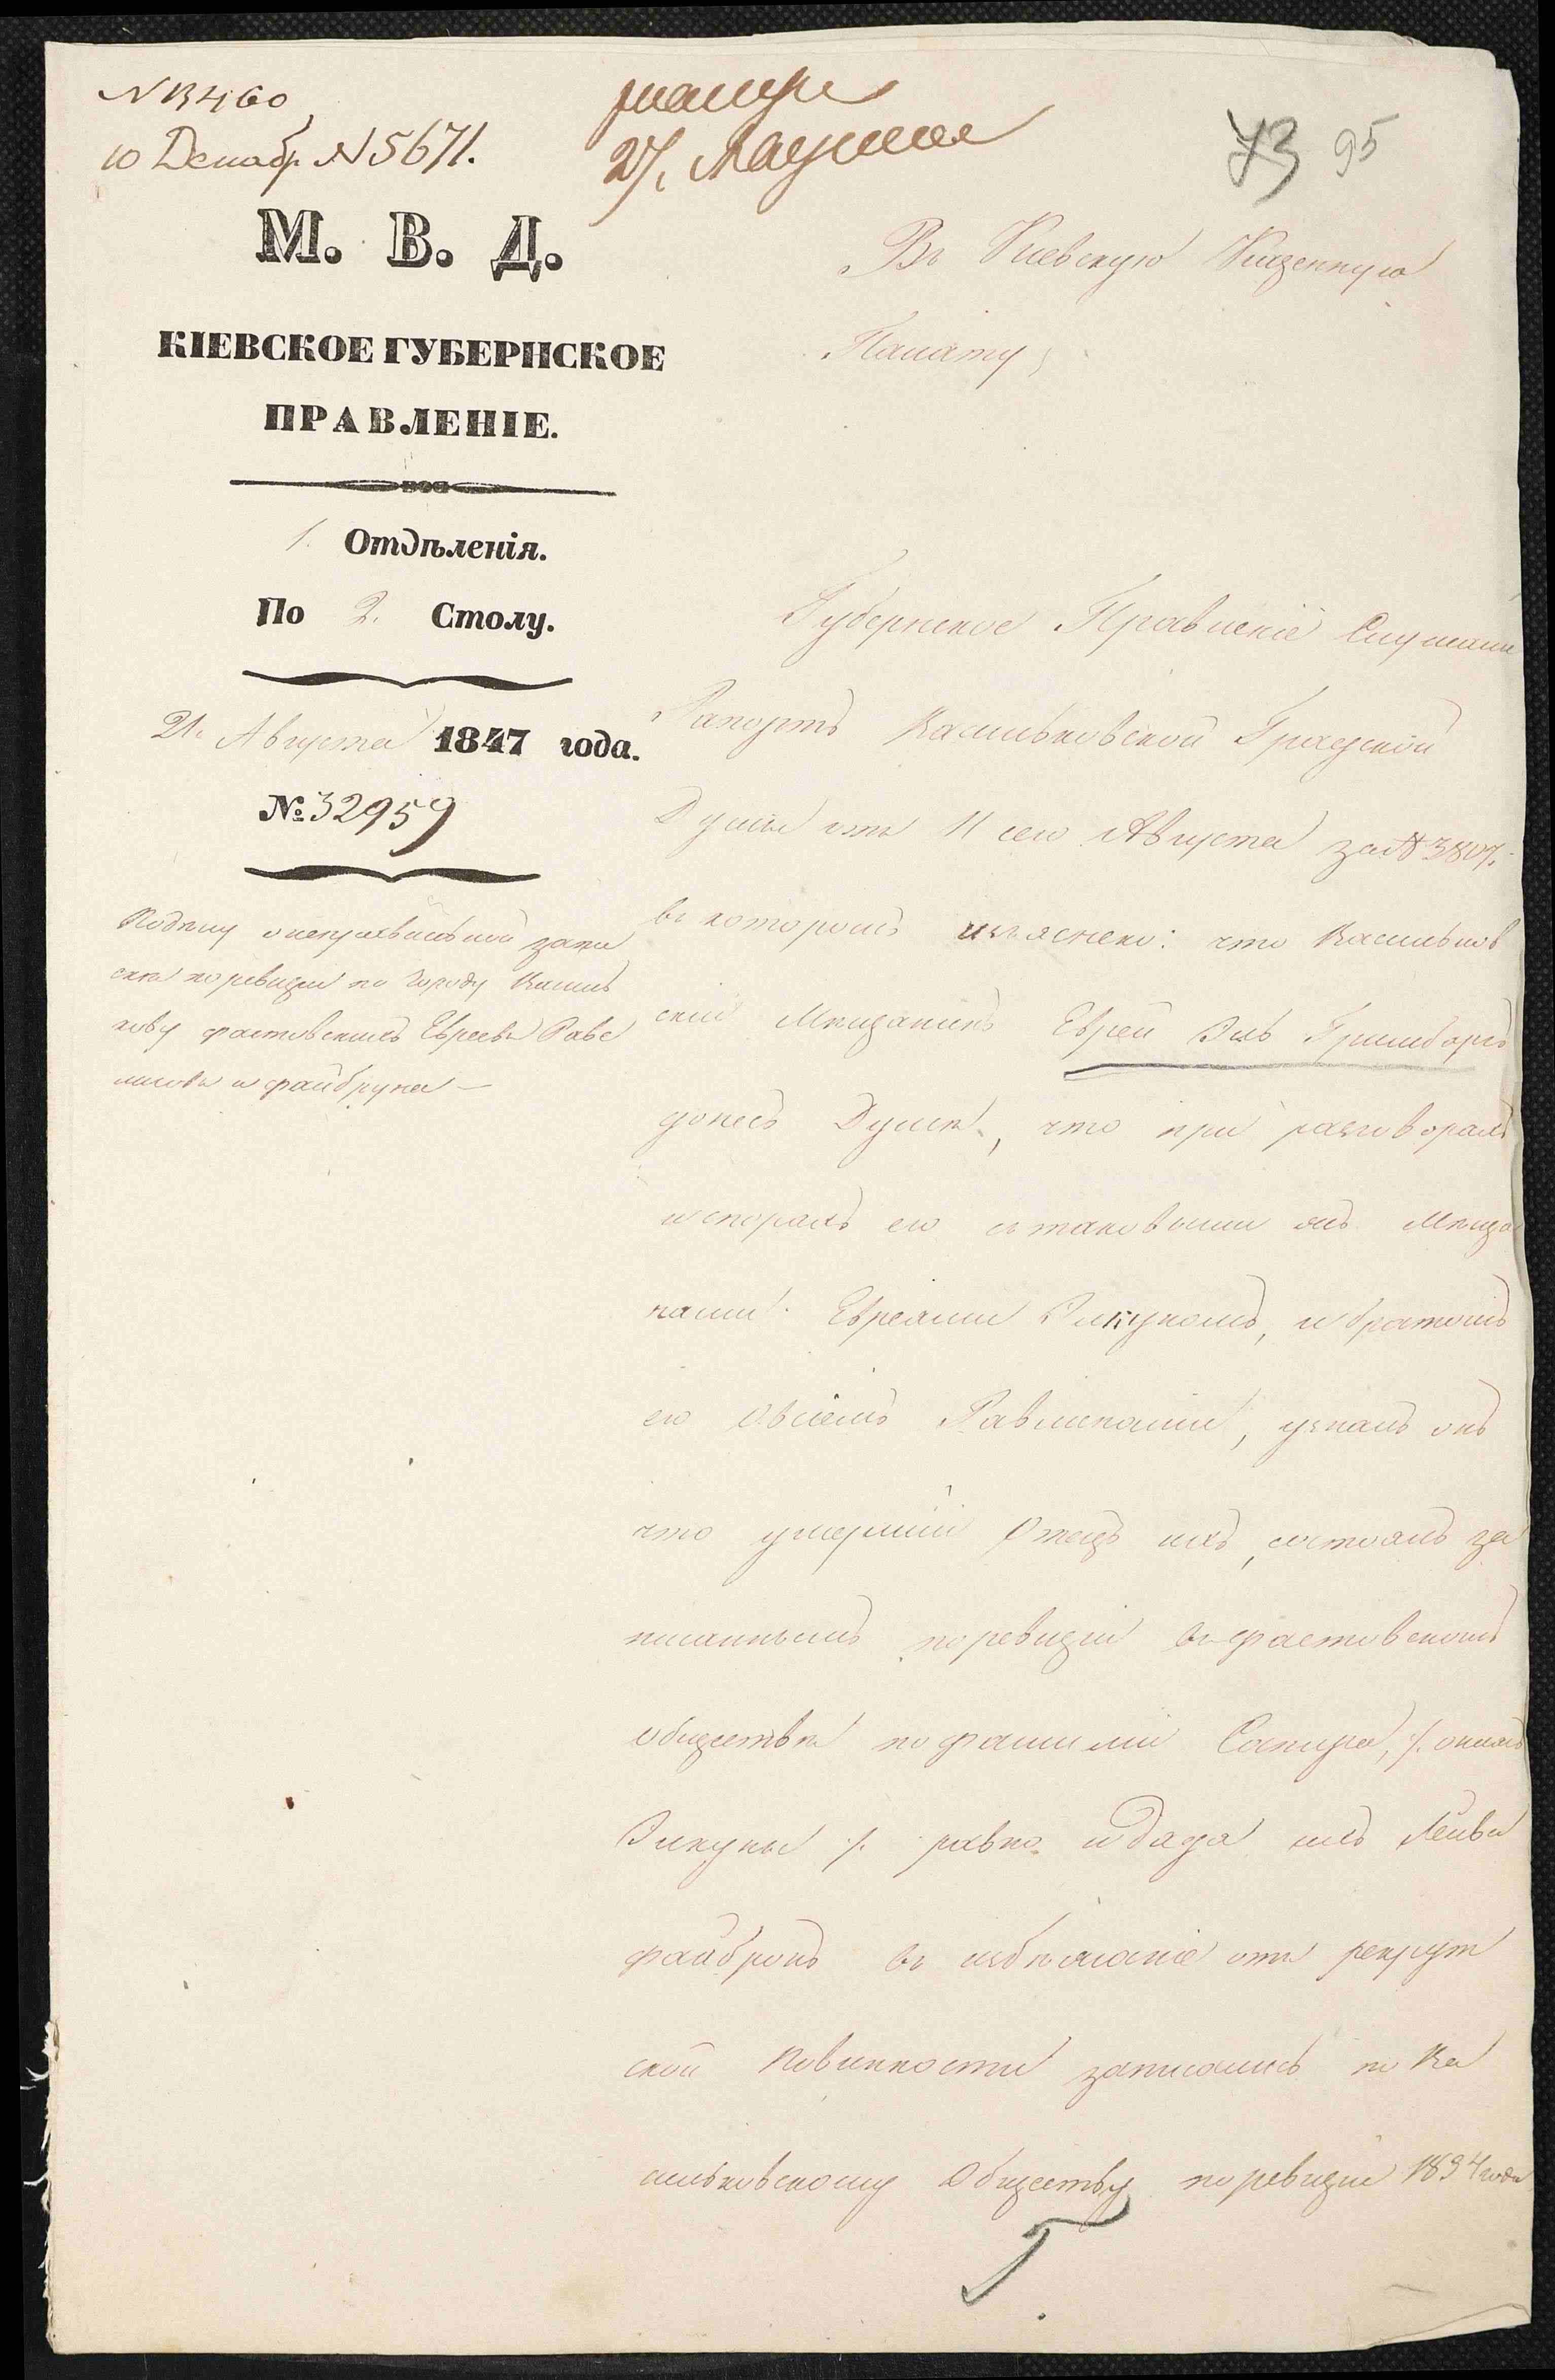 10 Декабр. N 5671.
73 95
М. В. Д.
КІЕВСКОЕ ГУБЕРНСКОЕ
ПРАВЛЕНІЕ.
1. Отдѣленія.
По 2. Столу.
21. Августа 1847 года.
№ 32959
По дѣлу о неправильной запи
скѣ по ревизіи по городу Василь
кову фастовскихъ Евреевъ
и Файбруна
Въ Кіевскую Казенную
Палату,
Губернское Правленіе Слушали
Рапортъ Васильковской Градской
Думы отъ 11 сего Августа за N 3807.
въ которомъ изъяснено: что Васильков
скій Мѣщанинъ Еврей
донесъ Думѣ, что при разговорахъ
и спорахъ его съ таковыми жъ Мѣща
нами Евреями и братомъ
его узналъ онъ
что умершій Отецъ ихъ, состоялъ за
писаннымъ по ревизіи въ фастовскомъ
обществѣ по фамиліи
равно и дядя ихъ Лейба
файбронъ въ избѣжаніе отъ рекрут
ской повинности записались по Ва
сильковскому Обществу по ревизіи 1834 года